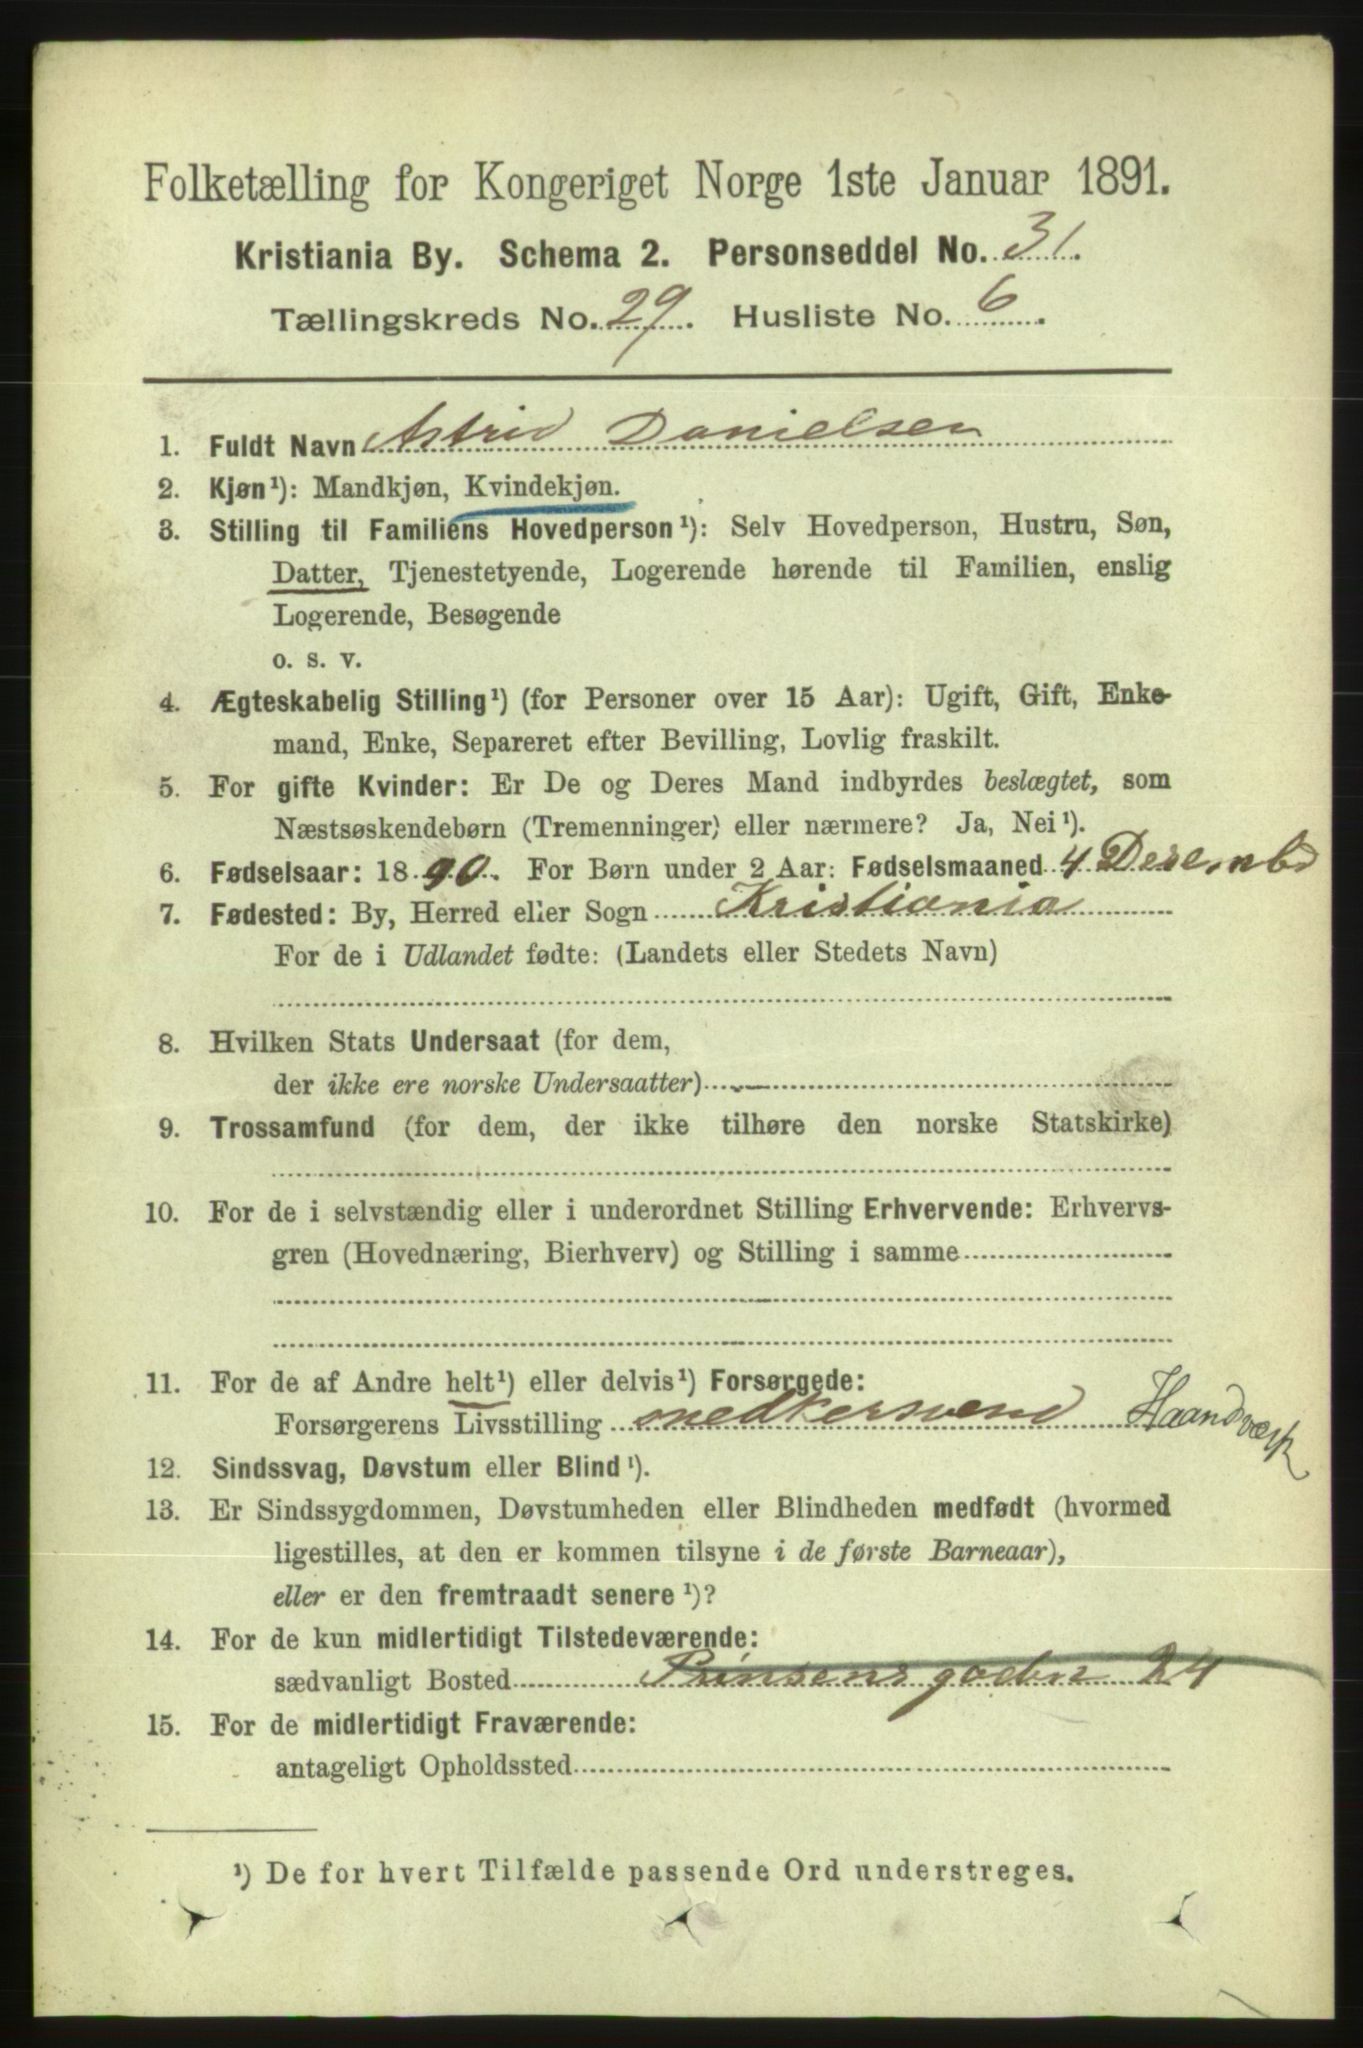 Folketælling for Kongeriget Norge 1ste Januar 1891.
Kristiania By. Schema 2. Personseddel No. 31.
Tællingskreds No. 29. Husliste No. 6.
1. Fuldt Navn Astrid Danielsen
2. Kjøn¹): Mandkjøn, Kvindekjøn.
3. Stilling til Familiens Hovedperson¹): Selv Hovedperson, Hustru, Søn,
Datter, Tjenestetyende, Logerende hørende til Familien, enslig
Logerende, Besøgende
o. s. v.
4. Ægteskabelig Stilling¹) (for Personer over 15 Aar): Ugift, Gift, Enke-
mand, Enke, Separeret efter Bevilling, Lovlig fraskilt.
5. For gifte Kvinder: Er De og Deres Mand indbyrdes beslægtet, som
Næstsøskendebørn (Tremenninger) eller nærmere? Ja, Nei¹).
6. Fødselsaar: 1890. For Børn under 2 Aar: Fødselsmaaned 4 Desembr
7. Fødested: By, Herred eller Sogn Kristiania
For de i Udlandet fødte: (Landets eller Stedets Navn)
8. Hvilken Stats Undersaat (for dem,
der ikke ere norske Undersaatter)
9. Trossamfund (for dem, der ikke tilhøre den norske Statskirke)
10. For de i selvstændig eller i underordnet Stilling Erhvervende: Erhvervs-
gren (Hovednæring, Bierhverv) og Stilling i samme
11. For de af Andre helt¹) eller delvis¹) Forsørgede:
Forsørgerens Livsstilling snedkersvend Haandværk
12. Sindssvag, Døvstum eller Blind¹).
13. Er Sindssygdommen, Døvstumheden eller Blindheden medfødt (hvormed
ligestilles, at den er kommen tilsyne i de første Barneaar),
eller er den fremtraadt senere¹)?
14. For de kun midlertidigt Tilstedeværende:
sædvanligt Bosted Prinsens gaden 24
15. For de midlertidigt Fraværende:
antageligt Opholdssted
¹) De for hvert Tilfælde passende Ord understreges.